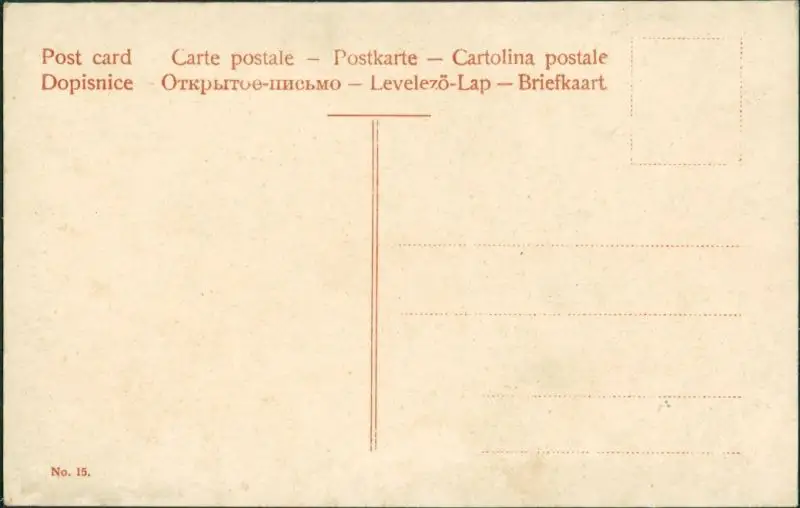 Post card Carte postale – Postkarte – Cartolina postale
Dopisnice - Открытое-письмо – Levelező-Lap – Briefkaart
No. 15.